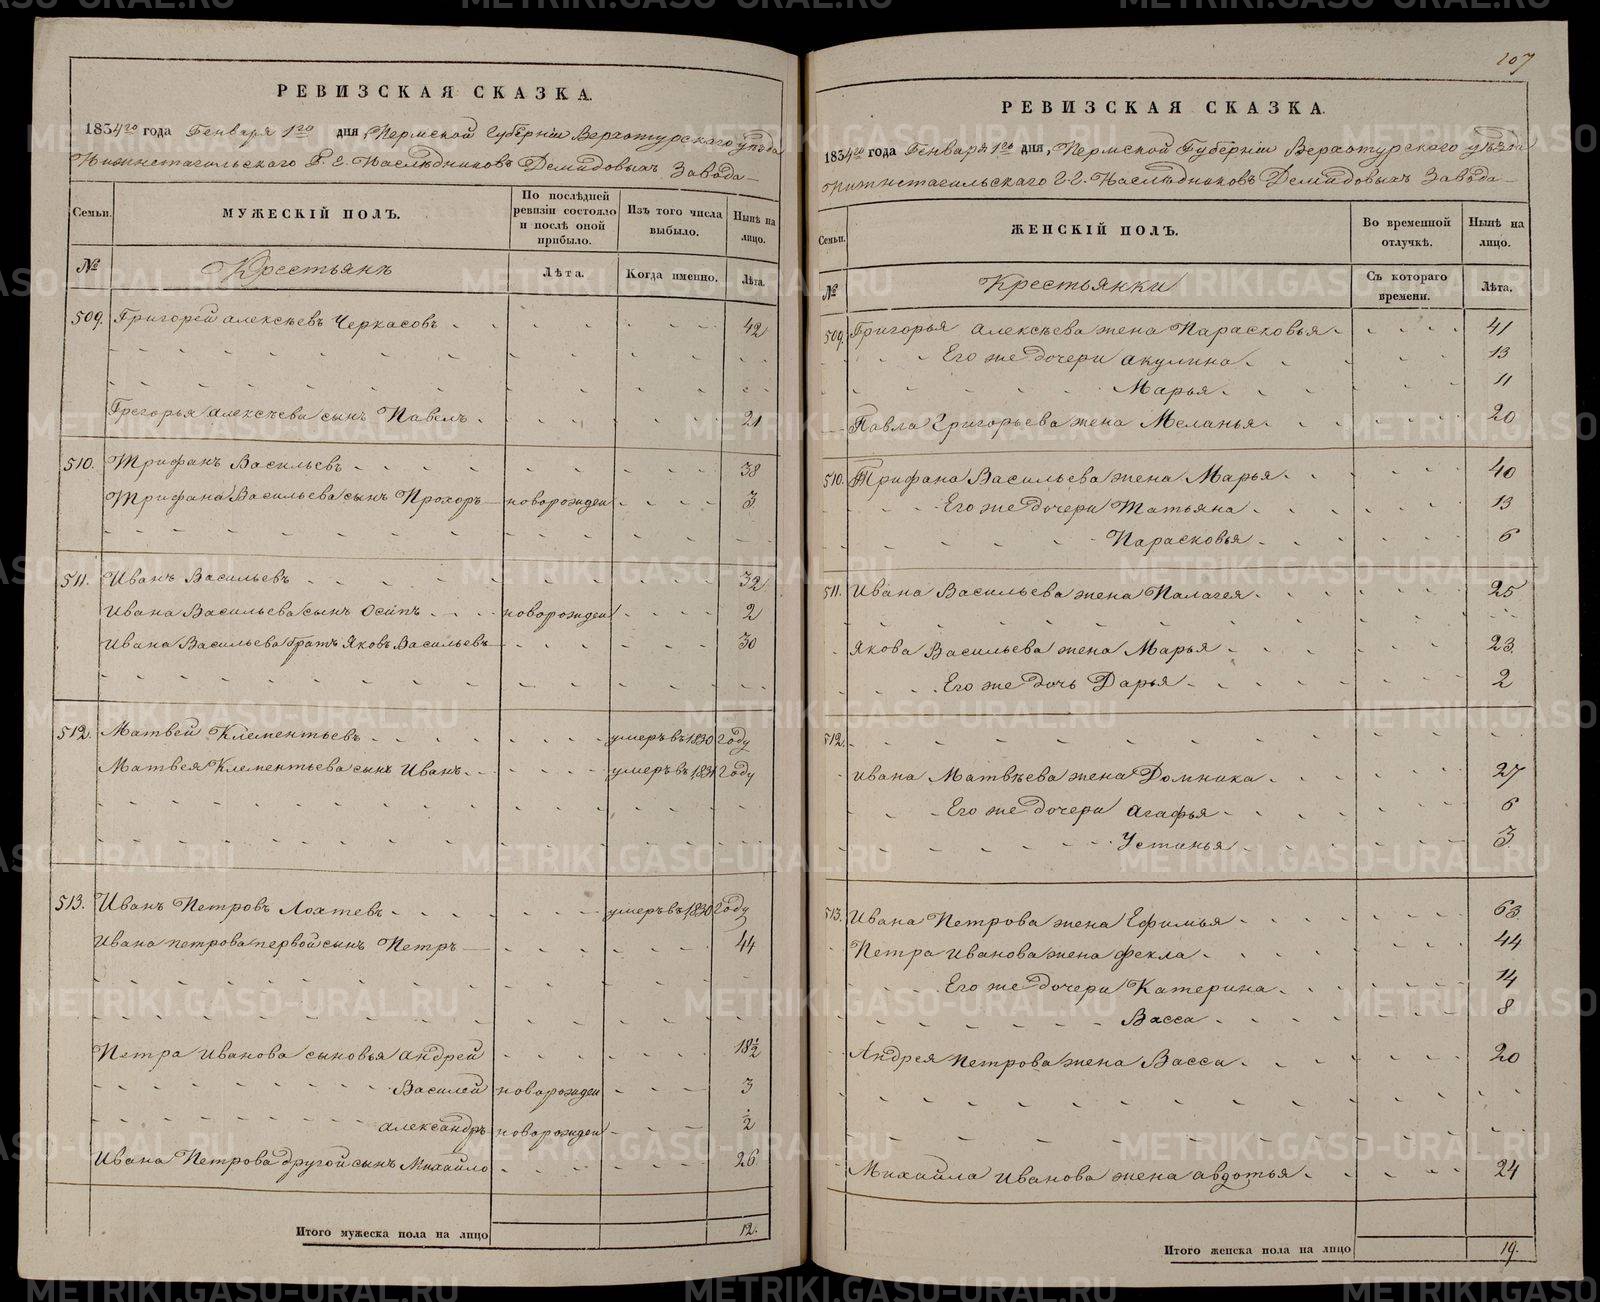 РЕВИЗСКАЯ СКАЗКА.
1834го года Генваря 1го дня, Пермской Губернiи Верхотурскаго уѣзда
Нижнетагильскаго Г. Г. Наслѣдниковъ Демидовыхъ Завода
Семьи. МУЖЕСКІЙ ПОЛЪ. По послѣдней ревизіи состояло и послѣ оной прибыло. Изъ того числа выбыло. Нынѣ на лицо.
№ Крестьянъ Лѣта. Когда именно. Лѣта.
509. Григорей Алексѣевъ Черкасовъ 42
Григорья Алексѣева сынъ Павелъ 21
510. Трифанъ Васильевъ 38
Трифана Васильева сынъ Прохоръ новорожден 3
511. Иванъ Васильевъ 32
Ивана Васильева сынъ Осипъ новорожден 2
Ивана Васильева братъ Яковъ Васильевъ 30
512. Матвей Клементьевъ умеръ въ 1830 году
Матвея Клементьева сынъ Иванъ умеръ въ 1831 году
513. Иванъ Петровъ Лохтевъ умеръ въ 1830 году
Ивана Петрова первой сынъ Петръ 44
Петра Иванова сыновья Андрей 18½
Василей новорожден 3
Александръ новорожден ½
Ивана Петрова другой сынъ Михайло 26
Итого мужеска пола на лицо 12.
107
РЕВИЗСКАЯ СКАЗКА.
1834го года Генваря 1го дня, Пермской Губернiи Верхотурскаго уѣзда
Нижнетагильскаго Г. Г. Наслѣдниковъ Демидовыхъ Завода
Семьи. ЖЕНСКІЙ ПОЛЪ. Во временной отлучкѣ. Нынѣ на лицо.
№ Крестьянки Съ котораго времени. Лѣта.
509. Григорья Алексѣева жена Парасковья 41
Его же дочери Акулина 13
Марья 11
Павла Григорьева жена Меланья 20
510. Трифана Васильева жена Марья 40
Его же дочери Татьяна 13
Парасковья 6
511. Ивана Васильева жена Палагея 25
Якова Васильева жена Марья 23
Его же дочь Дарья 2
512.
Ивана Матвѣева жена Домника 27
Его же дочери Агафья 6
Устинья 3
513. Ивана Петрова жена Ефимья 63
Петра Иванова жена Фекла 44
Его же дочери Катерина 14
Васса 8
Андрея Петрова жена Васса 20
Михайла Иванова жена Авдотья 24
Итого женска пола на лицо 19.
METRIKI.GASO-URAL.RU